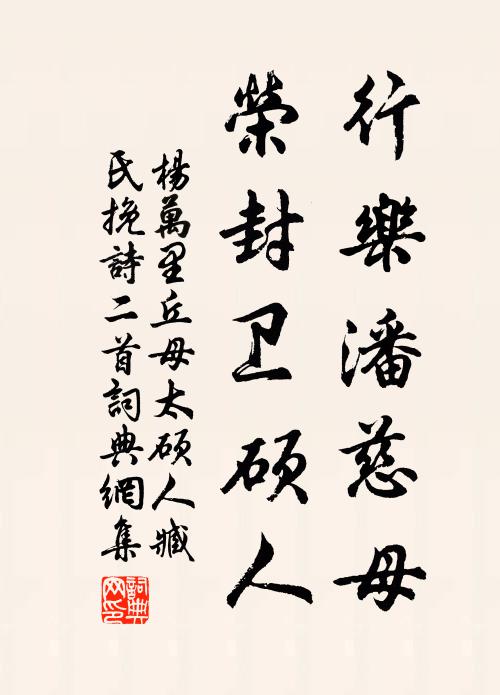 行樂潘慈母
榮封卫碩人
楊萬里丘母太碩人臧
氏挽詩二首詞典網集
詞典网印